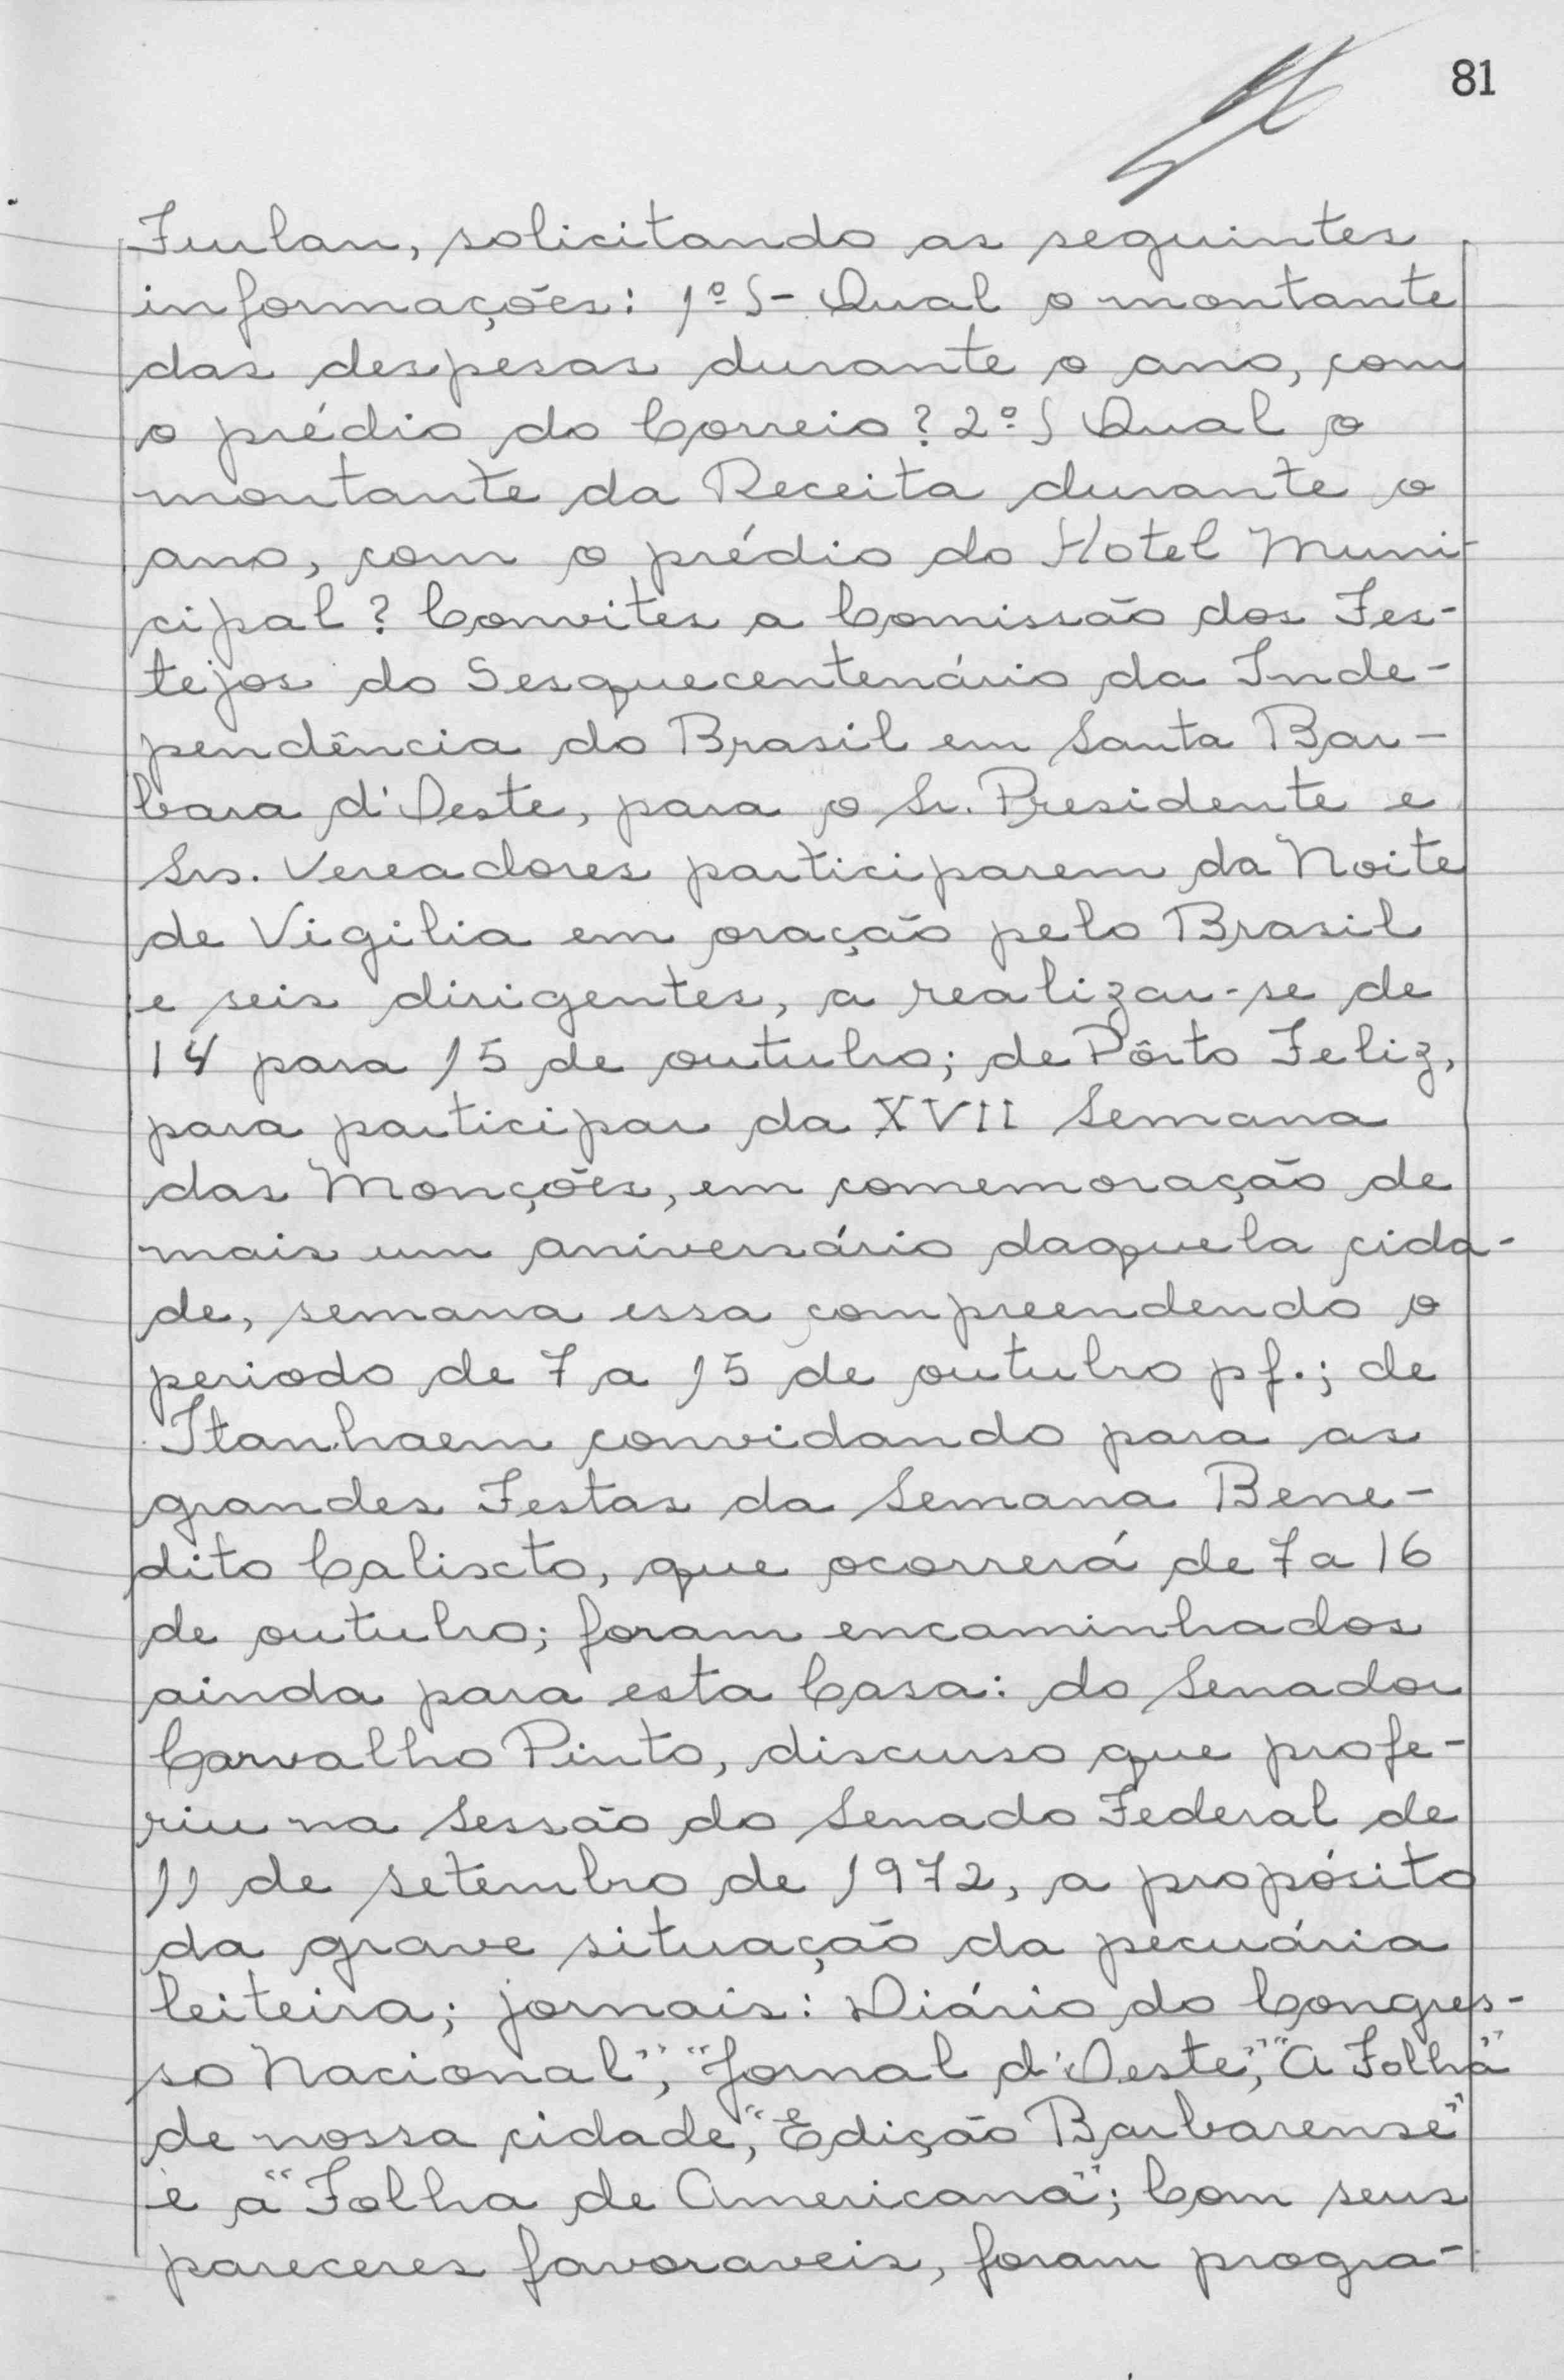 81
Furlan, solicitando as seguintes
informações: 1º)- Qual o montante
das despesas durante o ano, com
o prédio do Correio? 2º) Qual o
montante da Receita durante o
ano, com o prédio do Hotel Muni-
cipal? Convites a Comissão dos Fes-
tejos do Sesquecentenário da Inde-
pendência do Brasil em Santa Bar-
bara d'Oeste, para o Sr. Presidente e
Srs. Vereadores participarem da Noite
de Vigilia em oração pelo Brasil
e seis dirigentes, a realizar-se de
14 para 15 de outubro; de Pôrto Feliz,
para participar da XVII Semana
das Monções, em comemoração de
mais um aniversário daquela cida-
de, semana essa compreendendo o
periodo de 7 a 15 de outubro pf.; de
Itanhaem convidando para as
grandes Festas da Semana Bene-
dito Calixto, que ocorrerá de 7 a 16
de outubro; foram encaminhados
ainda para esta Casa: do Senador
Carvalho Pinto, discurso que profe-
riu na Sessão do Senado Federal de
11 de setembro de 1972, a propósito
da grave situação da pecuária
leiteira; jornais: Diário do Congres-
so Nacional", "Jornal d'Oeste", "A Folha"
de nossa cidade, "Edição Barbarense"
e a "Folha de Americana"; Com seus
pareceres favoraveis, foram progra-